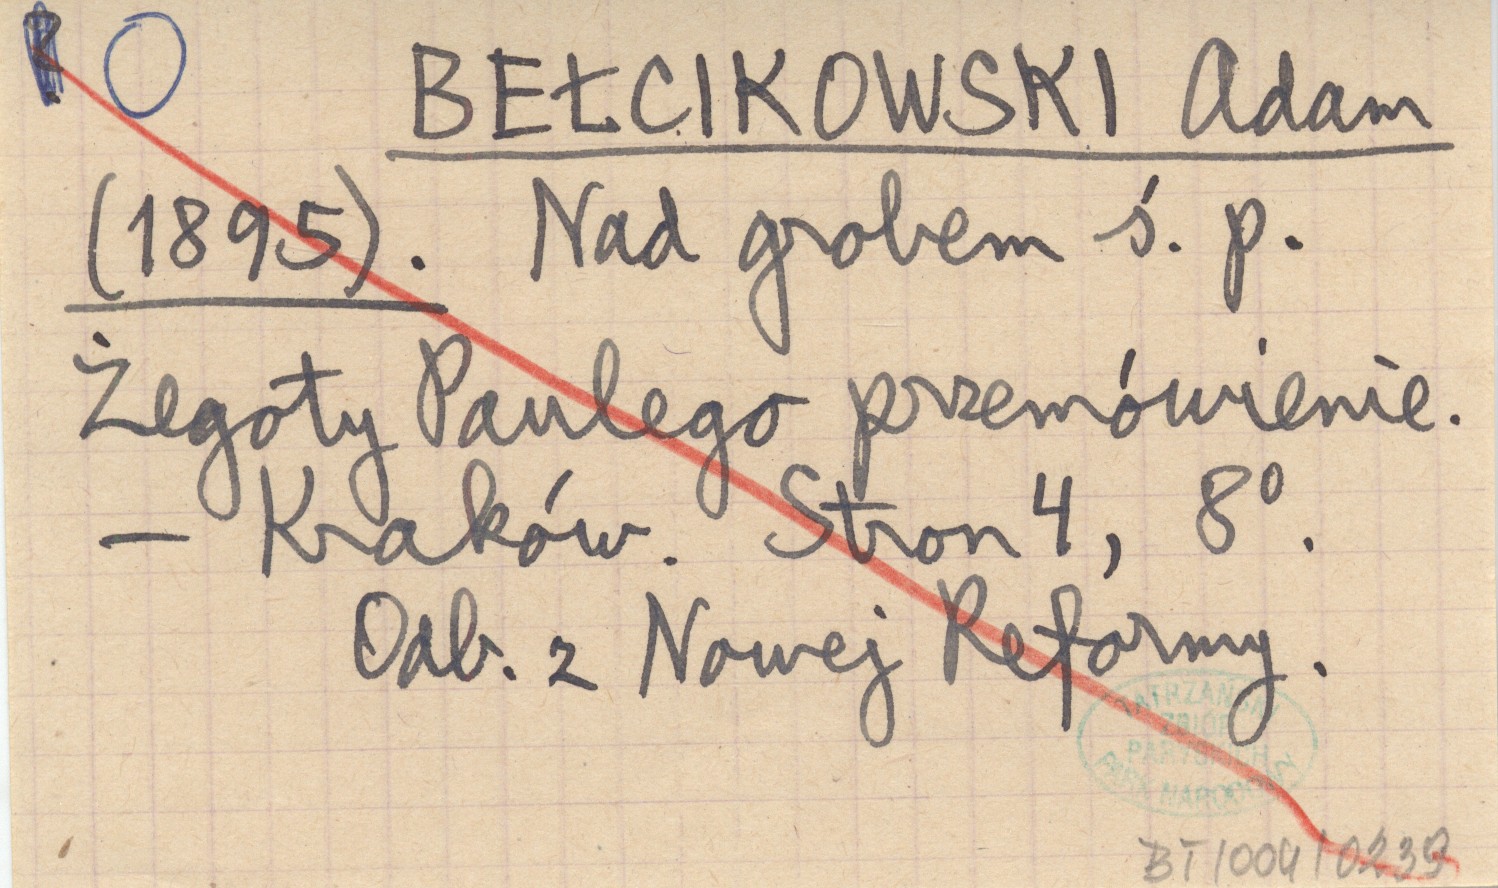 O
BEŁCIKOWSKI Adam
(1895). Nad grobem ś. p.
Żegoty Paulego przemówienie.
– Kraków. Stron 4, 8⁰.
Odb. z Nowej Reformy.
TATRZAŃSKI
ZBIOR
PARYSKICH
PARK NARODOWY
BT/004/0239